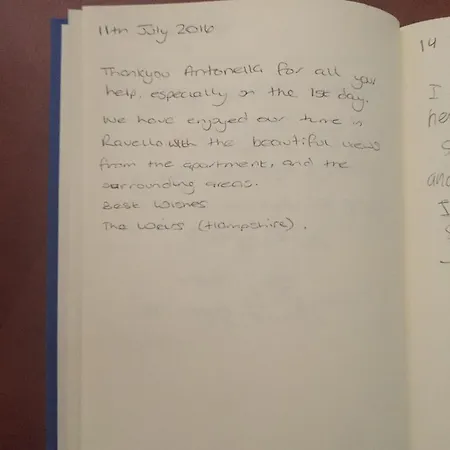 11th July 2016
Thankyou Antonella for all your
help, especially on the 1st day.
We have enjoyed our time in
Ravello with the beautiful views
from the apartment, and the
surrounding areas.
Best Wishes
The Weirs (Hampshire).
14
I
he
and